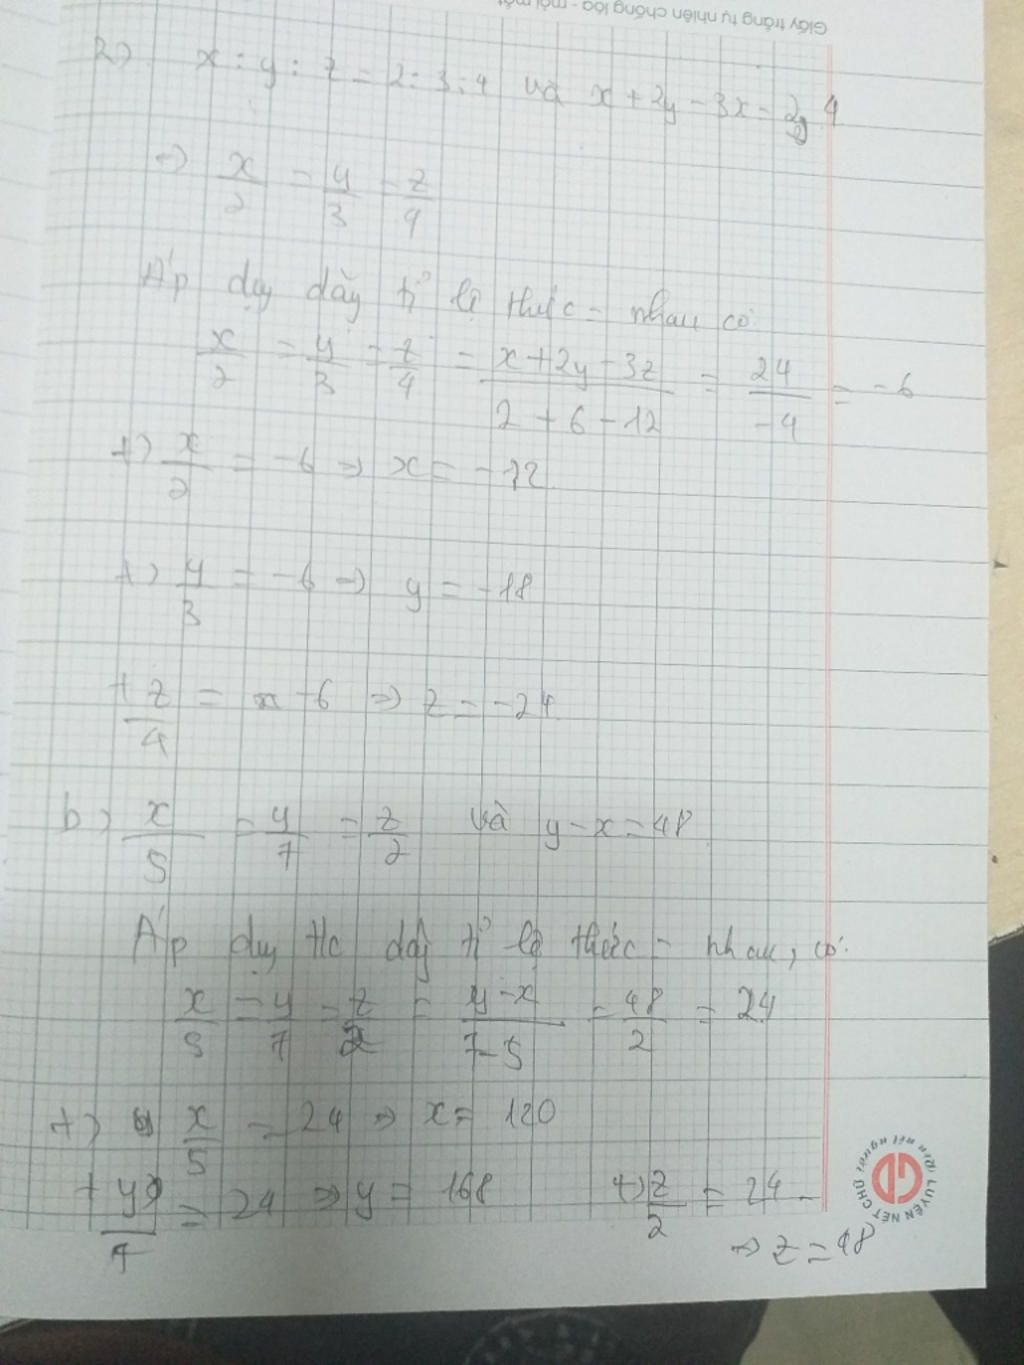 Giấy trắng tự nhiên chống lóa - mỏi mắt
a) x : y : z = 2 : 3 : 4 và x + 2y - 3x = 24
=> x/2 = y/3 = z/4
Áp dụg dãy tỉ lệ thức = nhau có
x/2 = y/3 = z/4 = (x + 2y - 3z)/(2 + 6 - 12) = 24/-4 = -6
+) x/2 = -6 => x = -12
+) y/3 = -6 => y = -18
+ z/4 = -6 => z = -24
b) x/5 = y/7 = z/2 và y - x = 48
Áp dụg t/c dãy tỉ lệ thức = nhau, có:
x/5 = y/7 = z/2 = (y - x)/(7 - 5) = 48/2 = 24
+) x/5 = 24 => x = 120
+ y/7 = 24 => y = 168 +) z/2 = 24
=> z = 48
LUYỆN NÉT CHỮ
Rèn nết người